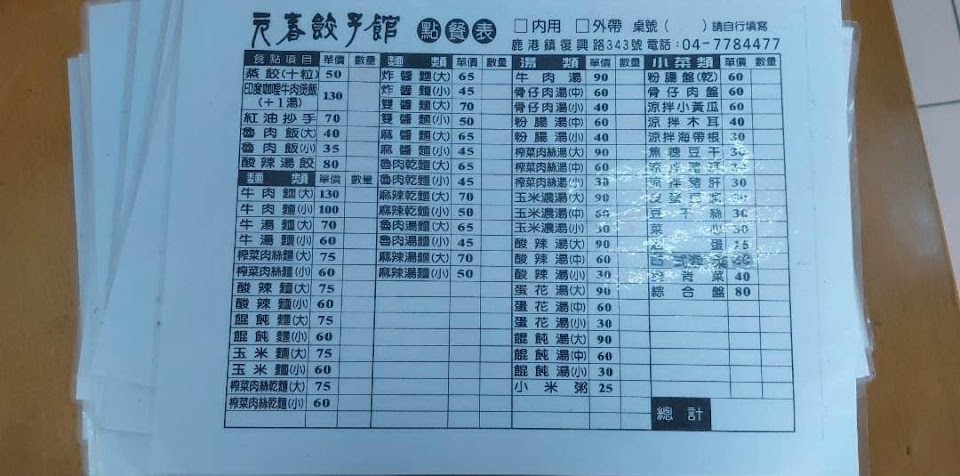 元春餃子館 點餐表 □內用 □外帶 桌號( ) 請自行填寫
鹿港鎮復興路343號 電話:04-7784477
餐點項目 單價 數量
蒸餃(十粒) 50
印度咖哩牛肉煲飯(+1湯) 130
紅油抄手 70
魯肉飯(大) 40
魯肉飯(小) 35
酸辣湯餃 80
麵類 單價 數量
牛肉麵(大) 130
牛肉麵(小) 100
牛湯麵(大) 70
牛湯麵(小) 60
榨菜肉絲麵(大) 75
榨菜肉絲麵(小) 60
酸辣麵(大) 75
酸辣麵(小) 60
餛飩麵(大) 75
餛飩麵(小) 60
玉米麵(大) 75
玉米麵(小) 60
榨菜肉絲乾麵(大) 75
榨菜肉絲乾麵(小) 60
麵類 單價 數量
炸醬麵(大) 65
炸醬麵(小) 45
雙醬麵(大) 70
雙醬麵(小) 50
麻醬麵(大) 65
麻醬麵(小) 45
魯肉乾麵(大) 65
魯肉乾麵(小) 45
麻辣乾麵(大) 70
麻辣乾麵(小) 50
魯肉湯麵(大) 65
魯肉湯麵(小) 45
麻辣湯麵(大) 70
麻辣湯麵(小) 50
湯類 單價 數量
牛肉湯 90
骨仔肉湯(中) 60
骨仔肉湯(小) 40
粉腸湯(中) 60
粉腸湯(小) 40
榨菜肉絲湯(大) 90
榨菜肉絲湯(中) 60
榨菜肉絲湯(小) 30
玉米濃湯(大) 90
玉米濃湯(中) 60
玉米濃湯(小) 30
酸辣湯(大) 90
酸辣湯(中) 60
酸辣湯(小) 30
蛋花湯(大) 90
蛋花湯(中) 60
蛋花湯(小) 30
餛飩湯(大) 90
餛飩湯(中) 60
餛飩湯(小) 30
小米粥 25
小菜類 單價 數量
粉腸盤(乾) 60
骨仔肉盤 60
涼拌小黃瓜 60
涼拌木耳 40
涼拌海帶根 30
焦糖豆干 30
涼拌 30
涼拌豬肝 30
30
豆干絲 30
菜心 30
蛋 15
60
燙青菜 40
綜合盤 80
總計